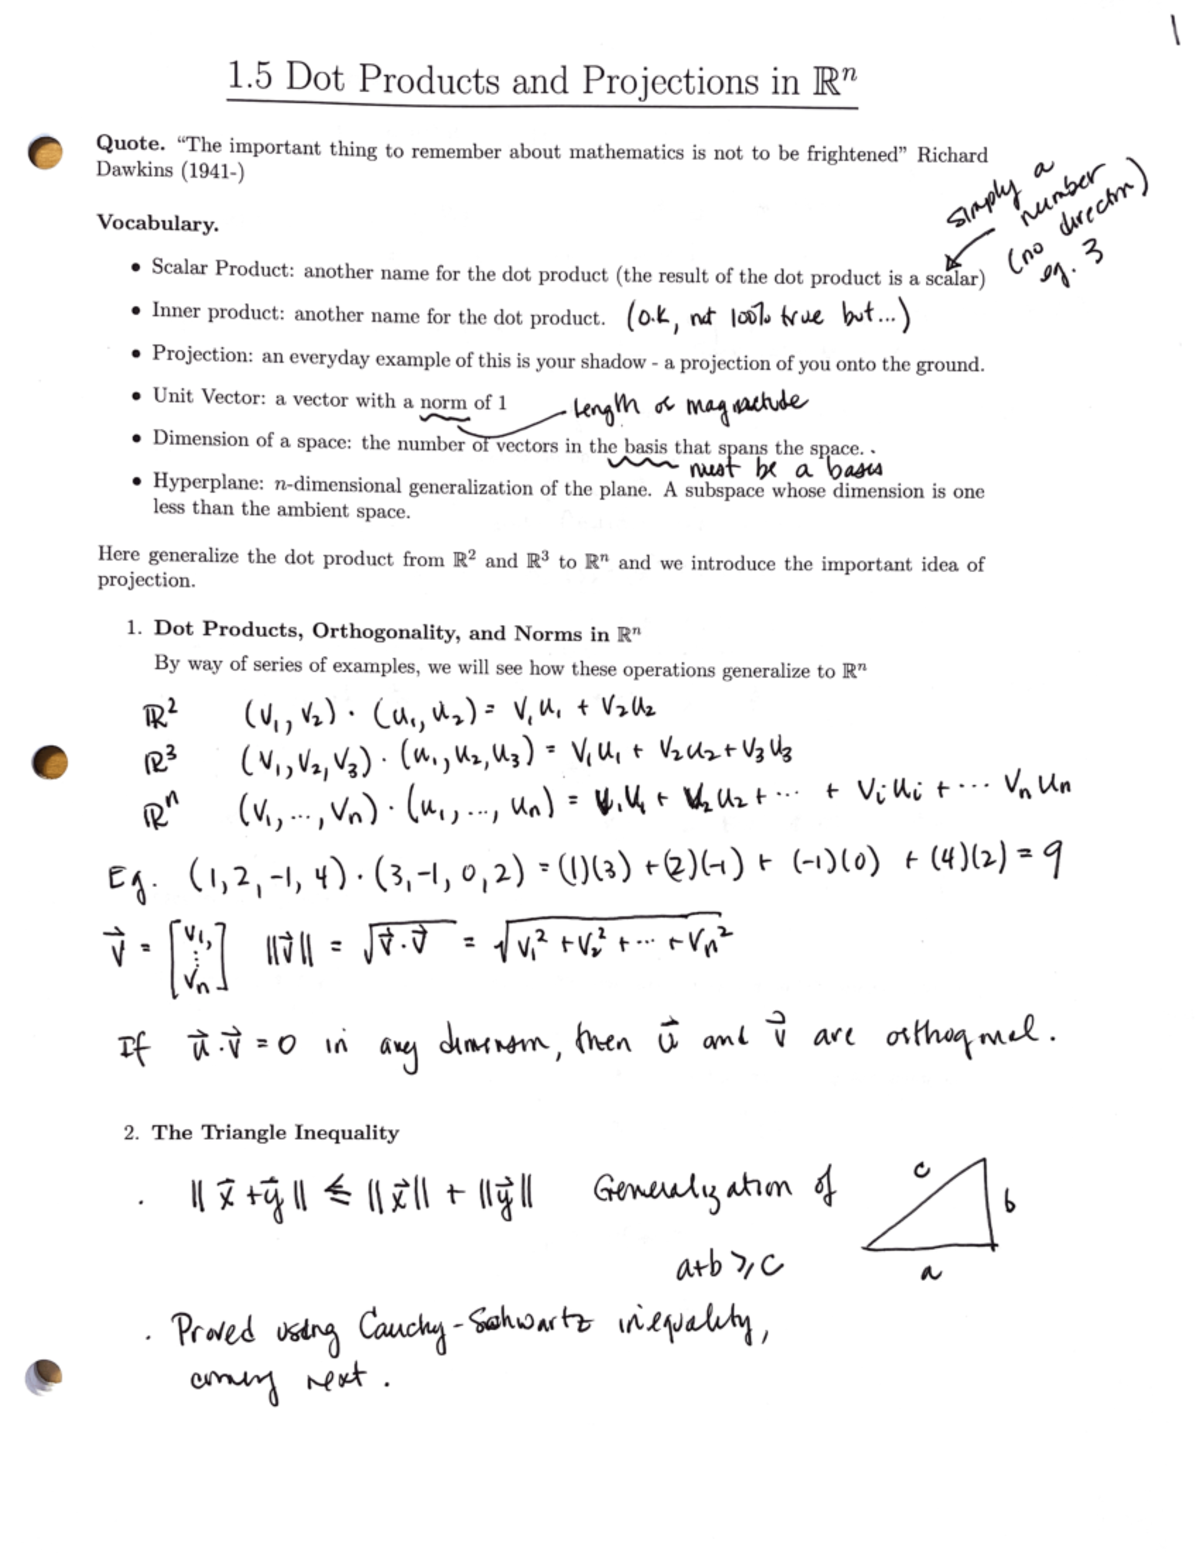 1
1.5 Dot Products and Projections in ℝⁿ
Quote. "The important thing to remember about mathematics is not to be frightened" Richard
Dawkins (1941-)
simply a
number
(no direction)
eg. 3
Vocabulary.
• Scalar Product: another name for the dot product (the result of the dot product is a scalar)
• Inner product: another name for the dot product. (o.k, not 100% true but...)
• Projection: an everyday example of this is your shadow - a projection of you onto the ground.
• Unit Vector: a vector with a norm of 1 length or magnitude
• Dimension of a space: the number of vectors in the basis that spans the space.
must be a basis
• Hyperplane: n-dimensional generalization of the plane. A subspace whose dimension is one
less than the ambient space.
Here generalize the dot product from ℝ² and ℝ³ to ℝⁿ and we introduce the important idea of
projection.
1. Dot Products, Orthogonality, and Norms in ℝⁿ
By way of series of examples, we will see how these operations generalize to ℝⁿ
ℝ² (v₁, v₂) · (u₁, u₂) = v₁u₁ + v₂u₂
ℝ³ (v₁, v₂, v₃) · (u₁, u₂, u₃) = v₁u₁ + v₂u₂ + v₃u₃
ℝⁿ (v₁, ..., vₙ) · (u₁, ..., uₙ) = v₁u₁ + v₂u₂ + ... + vᵢuᵢ + ... vₙuₙ
Eg. (1, 2, -1, 4) · (3, -1, 0, 2) = (1)(3) + (2)(-1) + (-1)(0) + (4)(2) = 9
v⃗ = [v₁, ⋮ vₙ] ||v⃗|| = √(v⃗ · v⃗) = √(v₁² + v₂² + ... + vₙ²)
If u⃗ · v⃗ = 0 in any dimension, then u⃗ and v⃗ are orthogonal.
2. The Triangle Inequality
· ||x⃗ + y⃗|| ≤ ||x⃗|| + ||y⃗|| Generalization of
c
b
a
a+b ≥ c
· Proved using Cauchy-Schwartz inequality,
coming next.